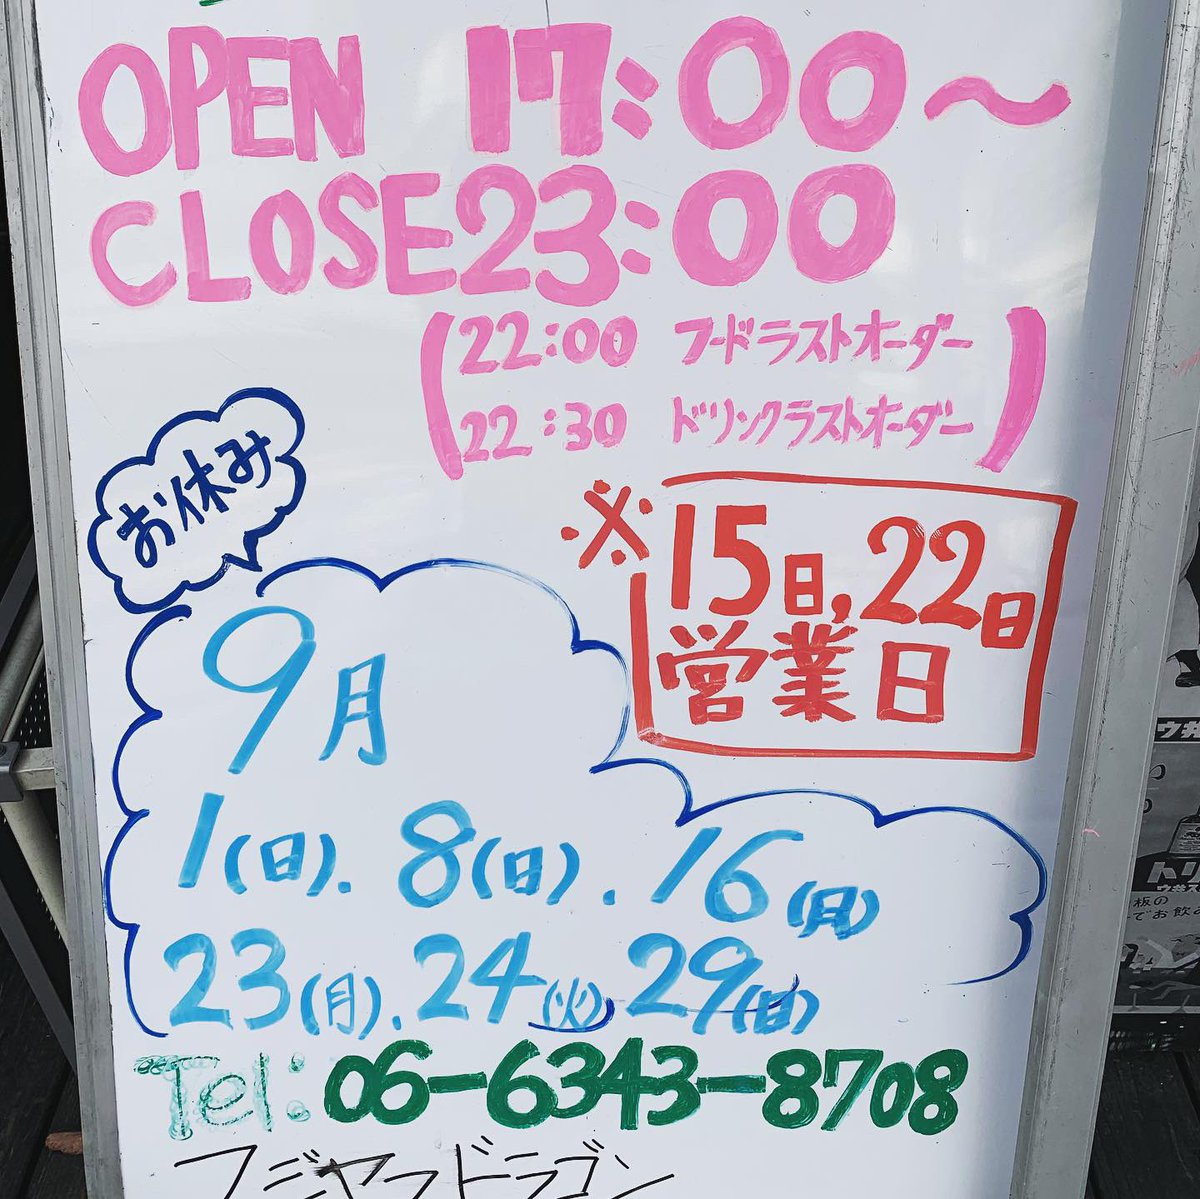 OPEN 17:00～
CLOSE 23:00
(22:00 フードラストオーダー
22:30 ドリンクラストオーダー)
お休み
※15日,22日
営業日
9月
1(日). 8(日). 16(月)
23(月). 24(火) 29(日)
Tel: 06-6343-8708
フジヤマドラゴン
トリ
板の
でお飲み